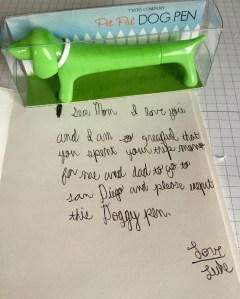 TWO'S COMPANY
Pet Pal DOG PEN
Dea Mom I love you
and I am so greaful that
you spent your trip mony
for me and dad to go to
san Diego and please exept
this Doggy pen.
Love
Luke